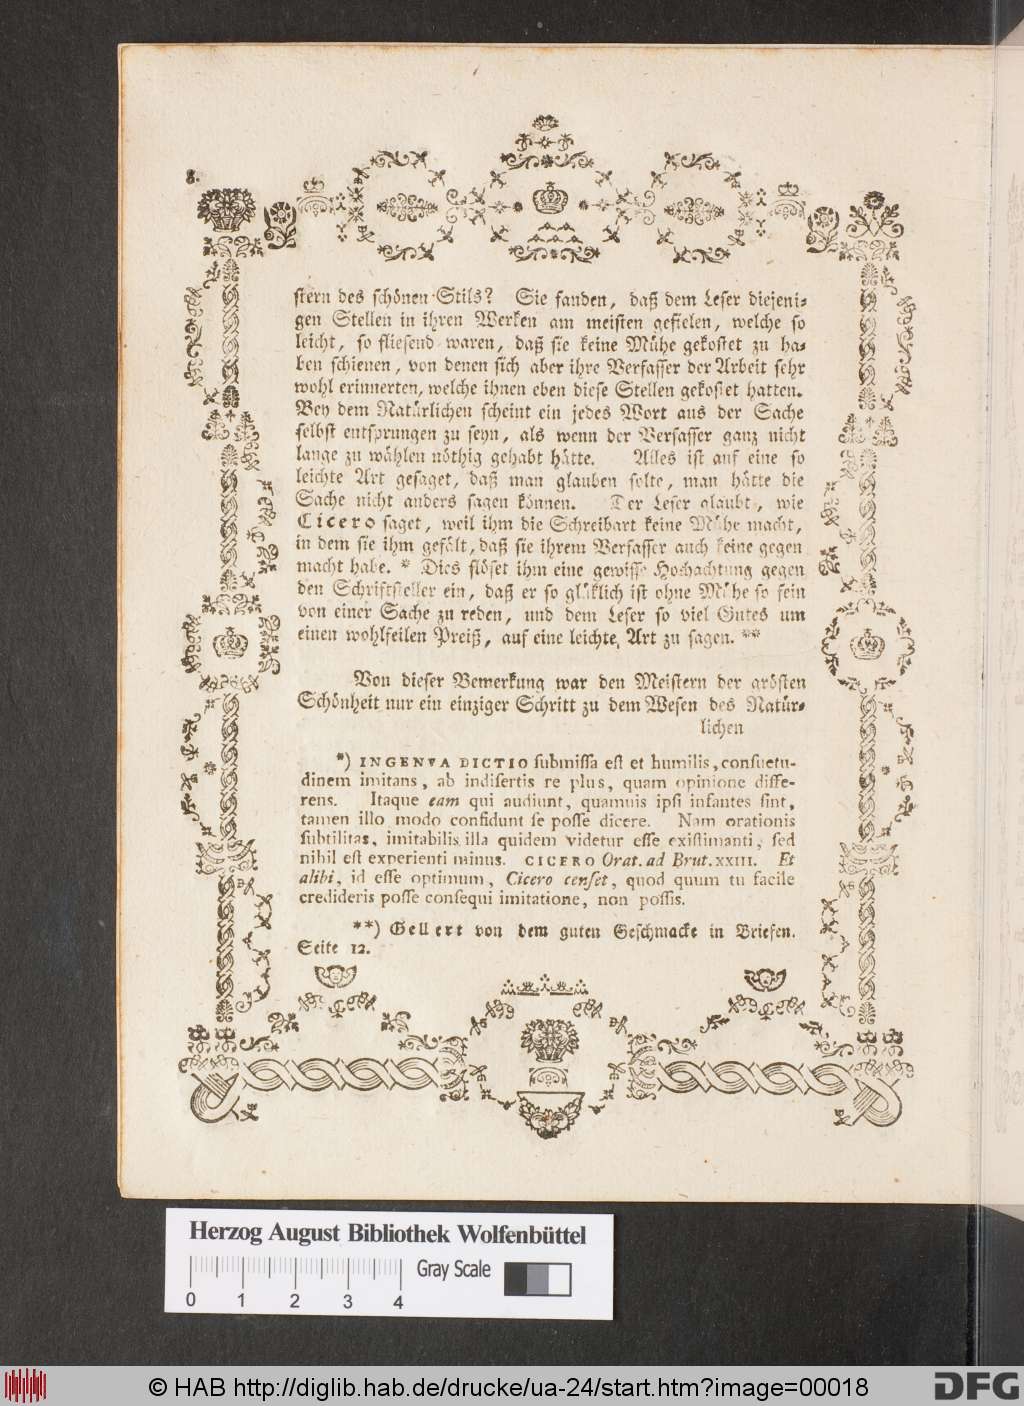 8.
stern des schönen Stils? Sie fanden, daß dem Leser diejeni-
gen Stellen in ihren Werken am meisten gefielen, welche so
leicht, so fliesend waren, daß sie keine Mühe gekostet zu ha-
ben schienen, von denen sich aber ihre Verfasser der Arbeit sehr
wohl erinnerten, welche ihnen eben diese Stellen gekostet hatten.
Bey dem Natürlichen scheint ein jedes Wort aus der Sache
selbst entsprungen zu seyn, als wenn der Verfasser ganz nicht
lange zu wählen nöthig gehabt hätte. Alles ist auf eine so
leichte Art gesaget, daß man glauben solte, man hätte die
Sache nicht anders sagen können. Der Leser glaubt, wie
Cicero saget, weil ihm die Schreibart keine Mühe macht,
in dem sie ihm gefält, daß sie ihrem Verfasser auch keine gegen
macht habe. * Dies flöset ihm eine gewisse Hochachtung gegen
den Schriftsteller ein, daß er so glüklich ist ohne Mühe so fein
von einer Sache zu reden, und dem Leser so viel Gutes um
einen wohlfeilen Preiß, auf eine leichte Art zu sagen. **
Von dieser Bemerkung war den Meistern der grösten
Schönheit nur ein einziger Schritt zu dem Wesen des Natür-
lichen
*) INGENVA DICTIO submissa est et humilis, consuetu-
dinem imitans, ab indisertis re plus, quam opinione diffe-
rens. Itaque eam qui audiunt, quamuis ipsi infantes sint,
tamen illo modo confidunt se posse dicere. Nam orationis
subtilitas, imitabilis illa quidem videtur esse existimanti, sed
nihil est experienti minus. CICERO Orat. ad Brut. XXIII. Et
alibi, id esse optimum, Cicero censet, quod quum tu facile
credideris posse consequi imitatione, non possis.
**) Gellert von dem guten Geschmacke in Briefen.
Seite 12.
Herzog August Bibliothek Wolfenbüttel
Gray Scale
0 1 2 3 4
© HAB http://diglib.hab.de/drucke/ua-24/start.htm?image=00018
DFG